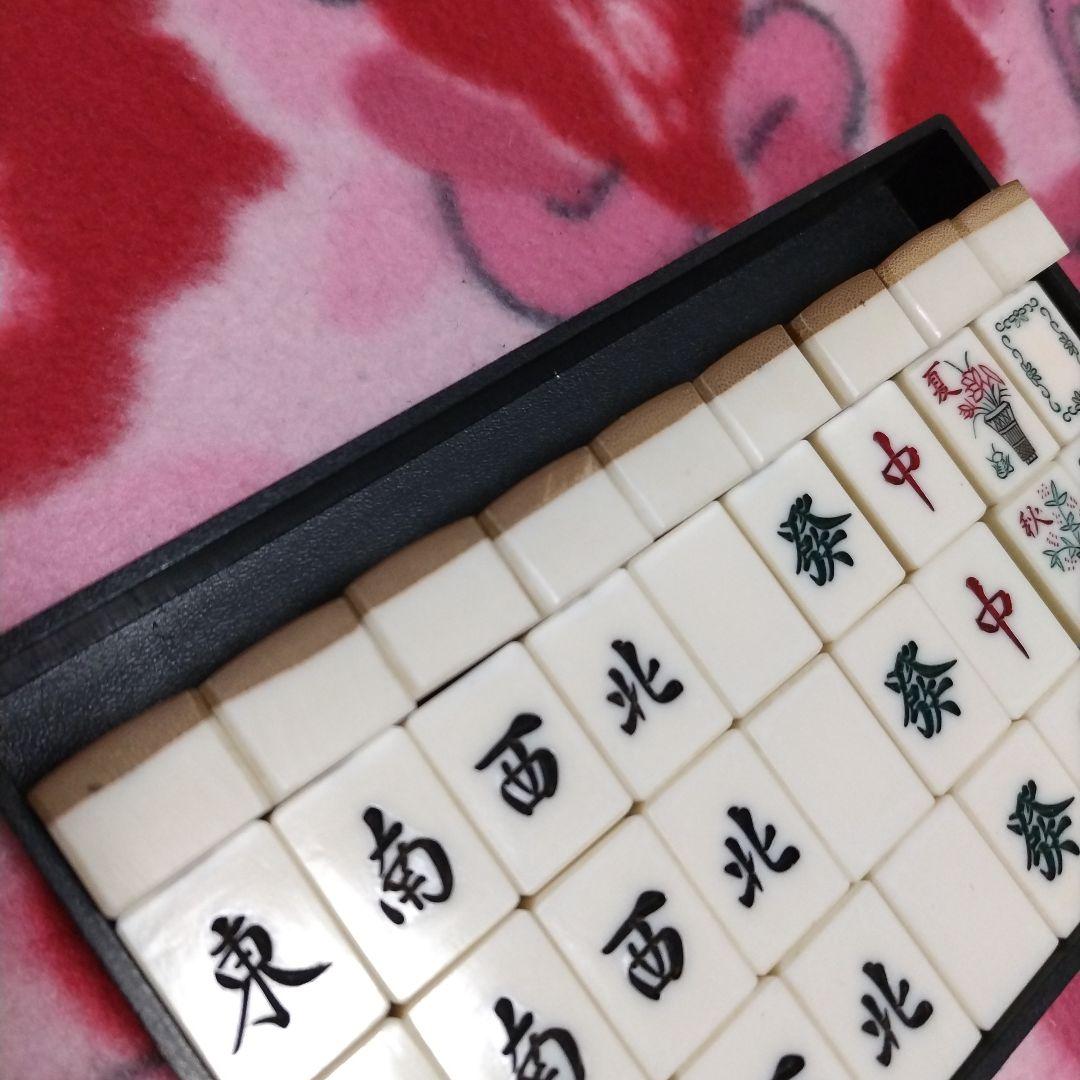 東 南 西 北 發 中 夏
南 西 北 發 中 秋
北 發